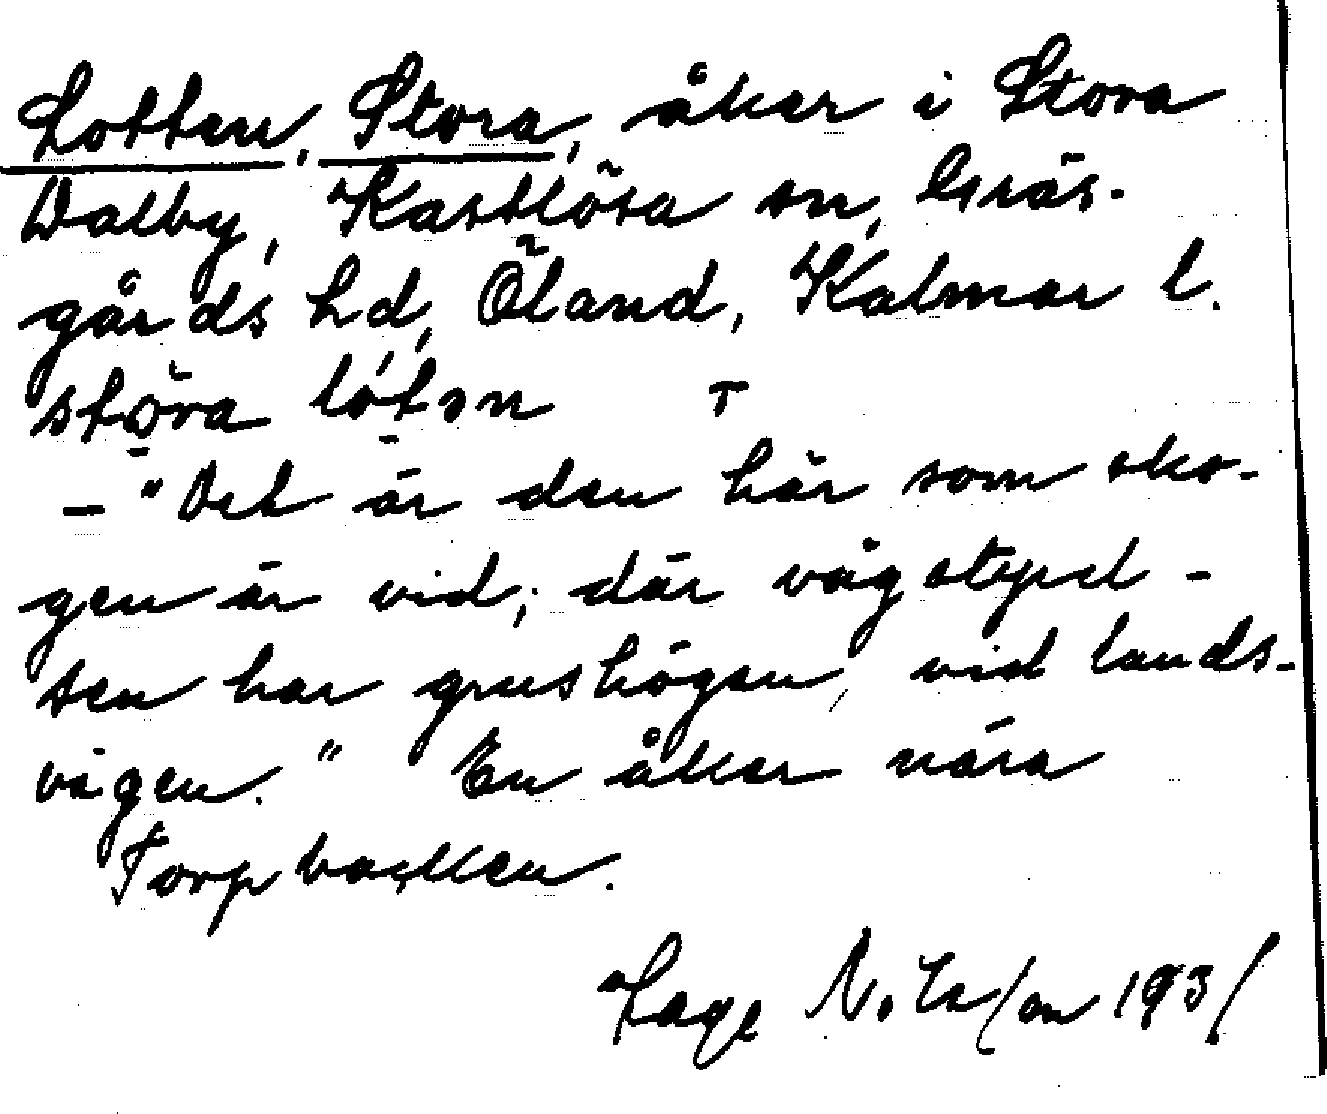 Lotten, Stora, åker i Stora
Dalby, Kastlösa sn, Gräs-
gårds hd, Öland, Kalmar l.
stora loten
– "Det är den här som sko-
gen är vid, där vägstyrel-
sen har grushögen, vid lands-
vägen." En åker nära
Torpbacken.
Hage N. 1931